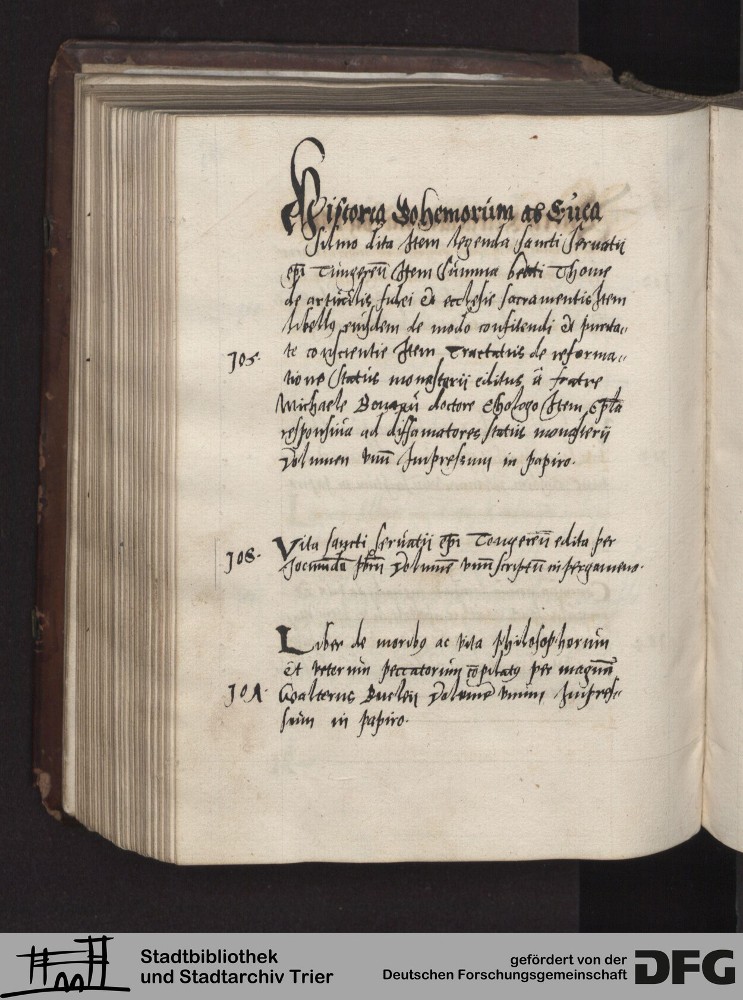 Historia Bohemorum ab Enea
Silvio edita Item legenda sancti Servatii
epi Tungereñ Item Summa beati Thome
de articulis fidei et ecclesie sacramentis Item
libellus eiusdem de modo confitendi et purita-
te conscientie Item Tractatus de reforma-
J05.
tione status monasterii editus a fratre
Michaele doctore theologo Item epistola
responsiva ad diffamatores status monasterii
Volumen unum Impressum in papiro.
Vita sancti Servatii epi Tongereñ edita per
J08.
Jocundū pbrm Volumē unū scriptū in pergameno.
Liber de moribus ac vita philosophorum
et veterum peccatorum cōpilatus per magrum
J0A.
Gwalterus Burley Volumē unum Impres-
sum in papiro.
Stadtbibliothek
und Stadtarchiv Trier
gefördert von der
Deutschen Forschungsgemeinschaft
DFG